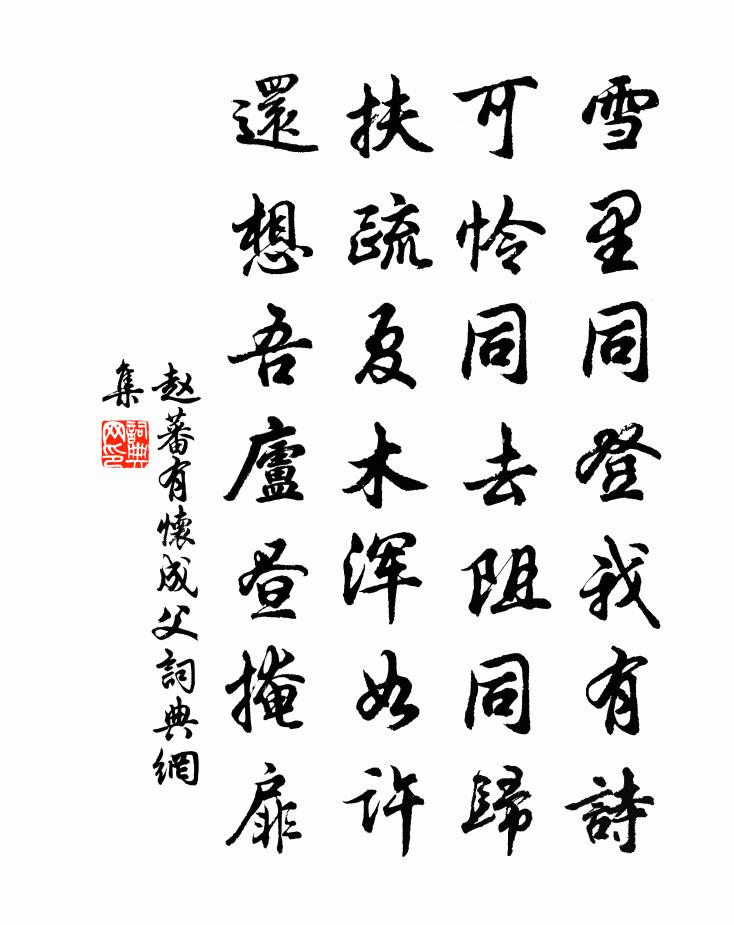 雪里同登我有詩
可怜同去阻同歸
扶疏夏木浑如许
還想吾廬昼掩扉
赵蕃有懷成父詞典網
集
詞典
网印